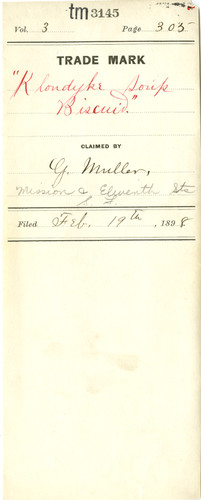 tm 3145
Vol. 3 Page 305
TRADE MARK
"Klondyke Soup
Biscuid."
CLAIMED BY
G. Muller,
Mission & Eleventh Sts
S. F.
Filed Feb. 19th, 1898